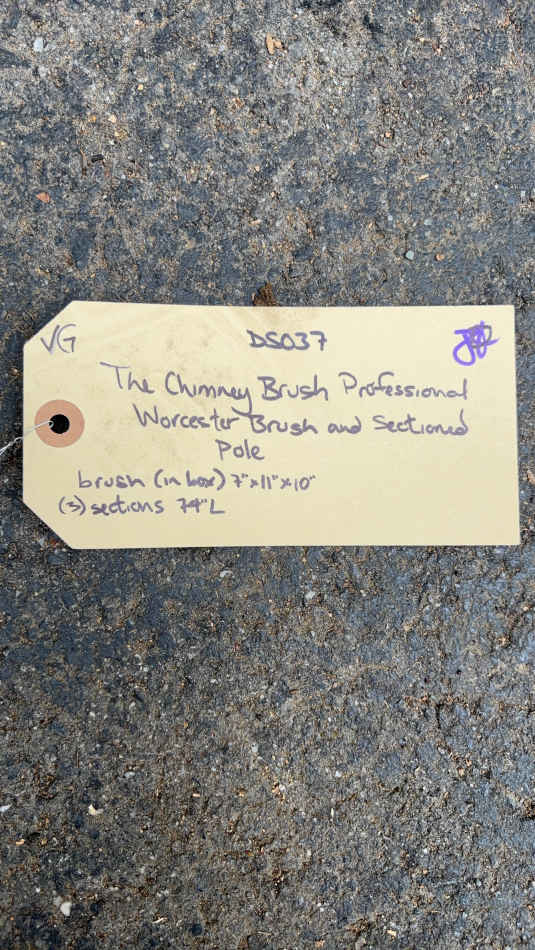 VG
DS037
The Chimney Brush Professional
Worcester Brush and Sectioned
Pole
brush (in box) 7"x11"x10"
(3) sections 74"L